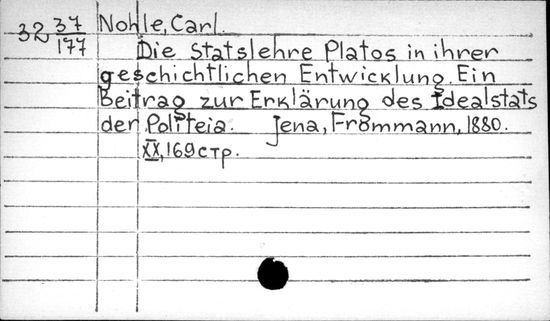 32 37/177 Nohle, Carl.
Die Statslehre Platos in ihrer
geschichtlichen Entwicklung. Ein
Beitrag zur Erklärung des Idealstats
der Politeia. Jena, Frommann, 1880.
XX, 169 стр.